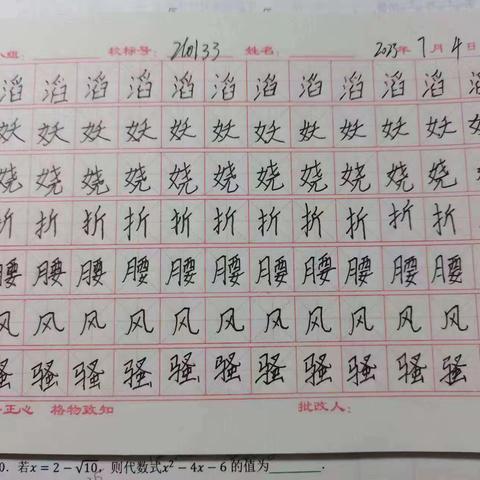 小组: 校标号: 260133 姓名: 2023年7月4日
滔滔滔滔滔滔滔滔滔滔滔滔
妖妖妖妖妖妖妖妖妖妖妖妖
娆娆娆娆娆娆娆娆娆娆娆
折折折折折折折折折折折
腰腰腰腰腰腰腰腰腰腰腰
风风风风风风风风风风风
骚骚骚骚骚骚骚骚骚骚骚
正心 格物致知 批改人:
0. 若x=2−√10, 则代数式x²−4x−6 的值为________.